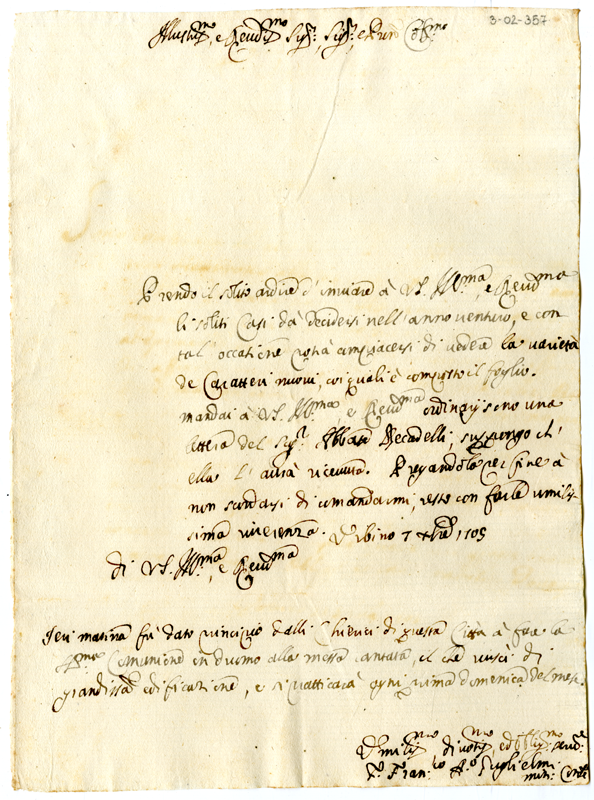 3-02-357
Illustr.mo, e Reud.mo Sig.r, Sig.r, e Pron Col.mo
Prendo il solito ardire d'inuiare à VS. Ill.ma, e Reud.ma
li soliti Casi dà decidersi nell'anno venturo, e con
tal' occatione potrà compiacersi di vedere la varietà
de Caratteri nuoui, coi quali è composto il foglio.
mandai à VS. Ill.ma e Reud.ma ordinarij sono una
lettera del Sig.r Abbate Beccadelli; suppongo ch'
ella l'aurà riceuuta. Pregandola per fine à
non scordarsi di comandarmi, resto con farle umilis-
sima riuerenza. Urbino 7 Xbre 1705
di VS. Ill.ma, e Reud.ma
Ieri mattina fù dato principio dalli Chierici di questa Città à fare la
Comunione in duomo alla messa cantata, il che riuscì di
grandiss.a edificazione, e si pratticarà ogni prima domenica del mese.
Umiliss.mo, diuotiss.mo, ed oblig.mo
F. Fran.co A.o Guglielmi
min. Conv.